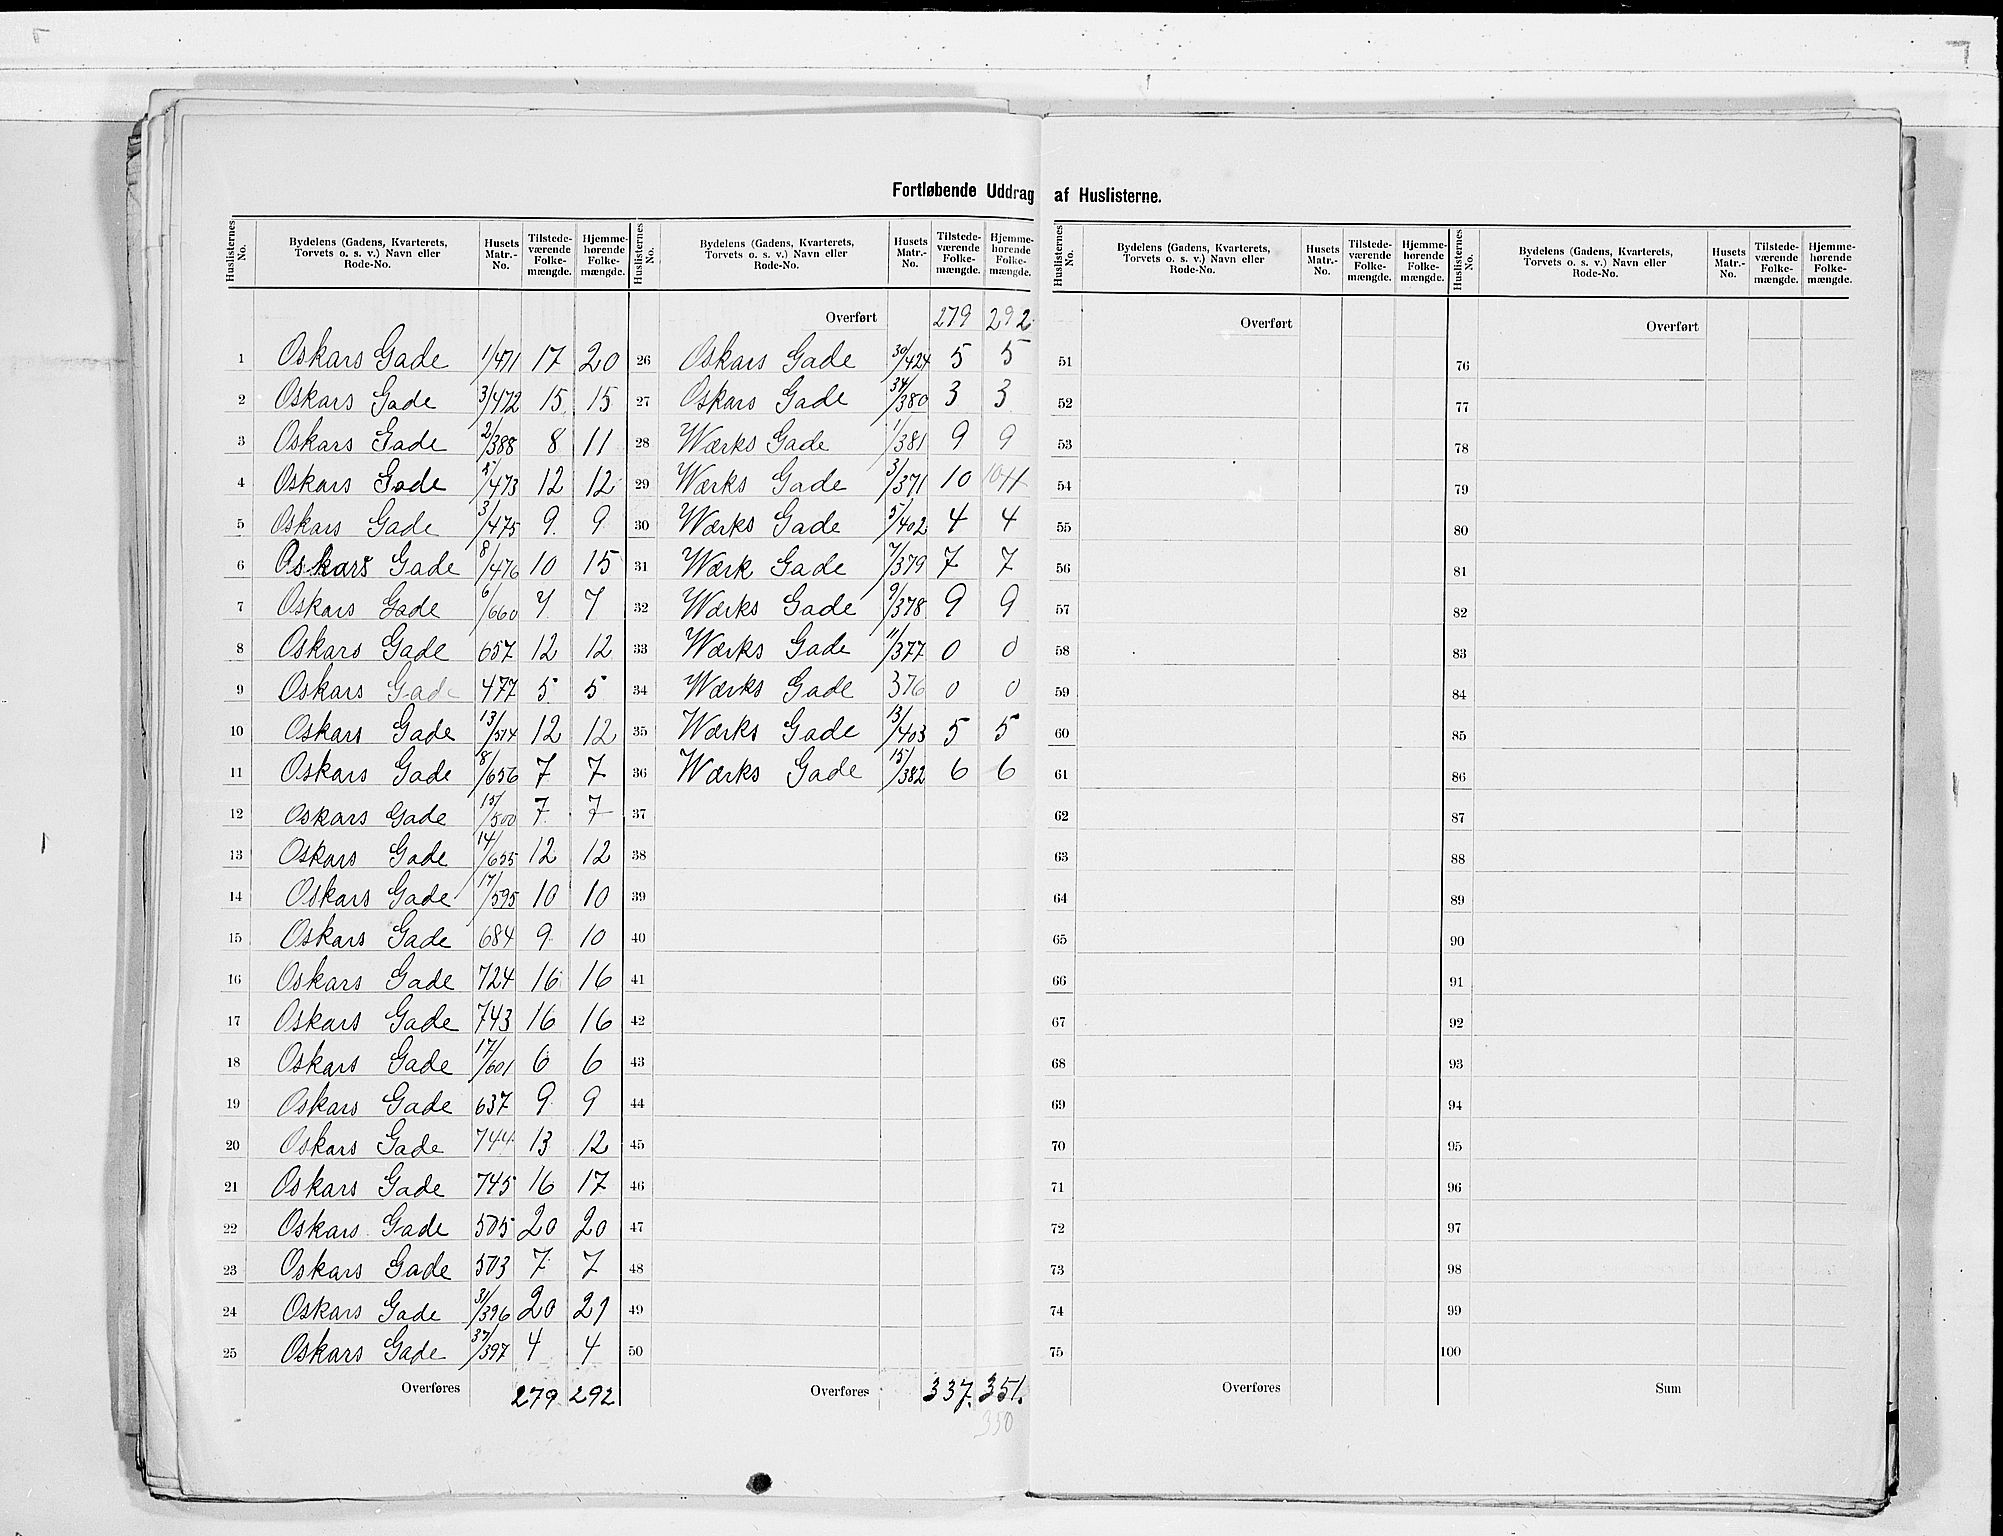 Fortløbende Uddrag af Huslisterne.
Huslisternes No. Bydelens (Gadens, Kvarterets, Torvets o. s. v.) Navn eller Rode-No. Husets Matr.-No. Tilstedeværende Folkemængde. Hjemmehørende Folkemængde.
1 Oskars Gade 1/471 17 20
2 Oskars Gade 3/472 15 15
3 Oskars Gade 2/388 8 11
4 Oskars Gade 5/473 12 12
5 Oskars Gade 3/475 9 9
6 Oskars Gade 8/476 10 15
7 Oskars Gade 6/660 7 7
8 Oskars Gade 657 12 12
9 Oskars Gade 477 5 5
10 Oskars Gade 13/514 12 12
11 Oskars Gade 8/656 7 7
12 Oskars Gade 15/500 7 7
13 Oskars Gade 14/655 12 12
14 Oskars Gade 17/595 10 10
15 Oskars Gade 684 9 10
16 Oskars Gade 724 16 16
17 Oskars Gade 743 16 16
18 Oskars Gade 17/601 6 6
19 Oskars Gade 637 9 9
20 Oskars Gade 744 13 12
21 Oskars Gade 745 16 17
22 Oskars Gade 505 20 20
23 Oskars Gade 503 7 7
24 Oskars Gade 31/396 20 21
25 Oskars Gade 37/397 4 4
Overføres 279 292
Huslisternes No. Bydelens (Gadens, Kvarterets, Torvets o. s. v.) Navn eller Rode-No. Husets Matr.-No. Tilstedeværende Folkemængde. Hjemmehørende Folkemængde.
Overført 279 292
26 Oskars Gade 30/424 5 5
27 Oskars Gade 34/380 3 3
28 Wærks Gade 1/381 9 9
29 Wærks Gade 3/371 10 10 11
30 Wærks Gade 5/402 4 4
31 Wærk Gade 7/379 7 7
32 Wærks Gade 9/378 9 9
33 Wærks Gade 11/377 0 0
34 Wærks Gade 376 0 0
35 Wærks Gade 13/403 5 5
36 Wærks Gade 15/382 6 6
37
38
39
40
41
42
43
44
45
46
47
48
49
50
Overføres 337. 351.
350
Huslisternes No. Bydelens (Gadens, Kvarterets, Torvets o. s. v.) Navn eller Rode-No. Husets Matr.-No. Tilstedeværende Folkemængde. Hjemmehørende Folkemængde.
Overført
51
52
53
54
55
56
57
58
59
60
61
62
63
64
65
66
67
68
69
70
71
72
73
74
75
Overføres
Huslisternes No. Bydelens (Gadens, Kvarterets, Torvets o. s. v.) Navn eller Rode-No. Husets Matr.-No. Tilstedeværende Folkemængde. Hjemmehørende Folkemængde.
Overført
76
77
78
79
80
81
82
83
84
85
86
87
88
89
90
91
92
93
94
95
96
97
98
99
100
Sum